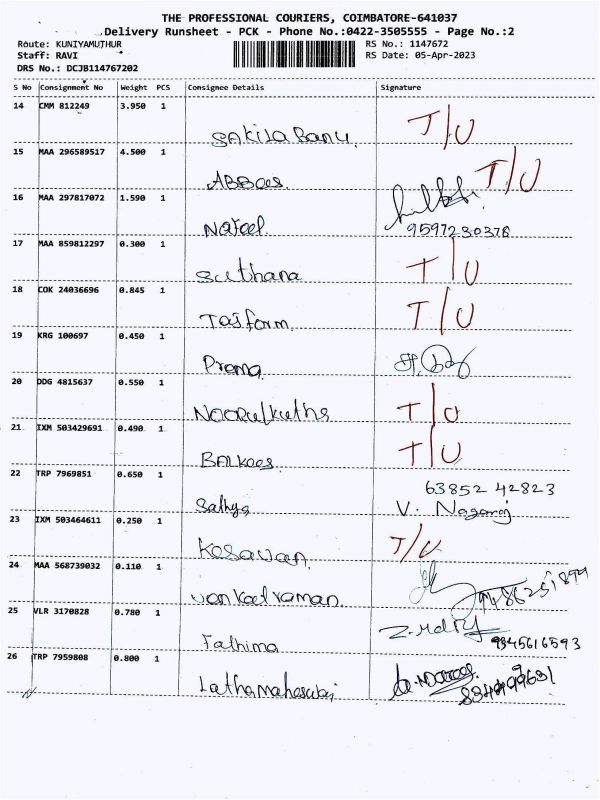 THE PROFESSIONAL COURIERS, COIMBATORE-641037
Delivery Runsheet - PCK - Phone No.:0422-3505555 - Page No.:2
Route: KUNIYAMUTHUR RS No.: 1147672
Staff: RAVI RS Date: 05-Apr-2023
DRS No.: DCJB114767202
S No Consignment No Weight PCS Consignee Details Signature
14 CMM 812249 3.950 1
SAkila Banu T/U
15 MAA 296589517 4.500 1
ABBaes T/U
16 MAA 297817072 1.590 1
9597230376
17 MAA 859812297 0.300 1
Suthana T/U
18 COK 24036696 0.845 1
Tasform T/U
19 KRG 100697 0.450 1
Prema
20 DDG 4815637 0.550 1
Noorulkuths T/U
21 IXM 503429691 0.490 1
BALKees T/U
22 TRP 7969851 0.650 1
63852 42823
Sathya V. Nagaraj
23 IXM 503464611 0.250 1
Kesavan T/U
24 MAA 568739032 0.110 1
vankatraman
25 VLR 3170828 0.780 1
Fathima 9345616593
26 TRP 7959808 0.800 1
Lathamaheswari